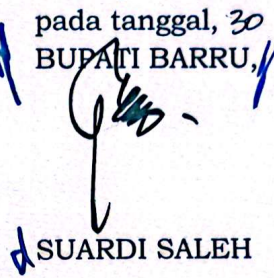 pada tanggal, 30
BUPATI BARRU,
SUARDI SALEH